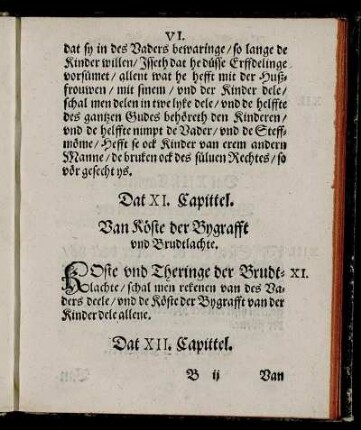 VI.
dat sy in des Vaders bewaringe/ so lange de
Kinder willen/ Isseth dat he düsse Erffdelinge
vorsümet/ allent wat he hefft mit der Huß-
frouwen/ mit sinem/ vnd der Kinder dele/
schal men delen in twe lyke dele/ vnd de helffte
des gantzen Gudes behöreth den Kinderen/
vnd de helffte nimpt de Vader/ vnd de Steff-
möme/ Hefft se ock Kinder van erem andern
Manne/ de bruken ock des süluen Rechtes/ so
vör gesecht ys.
Dat XI. Capittel.
Van Köste der Bygrafft
vnd Brudtlachte.
KOste vnd Theringe der Brudt- XI.
lachte/ schal men rekenen van des Va-
ders deele/ vnd de Köste der Bygrafft van der
Kinder dele allene.
Dat XII. Capittel.
B ij Van